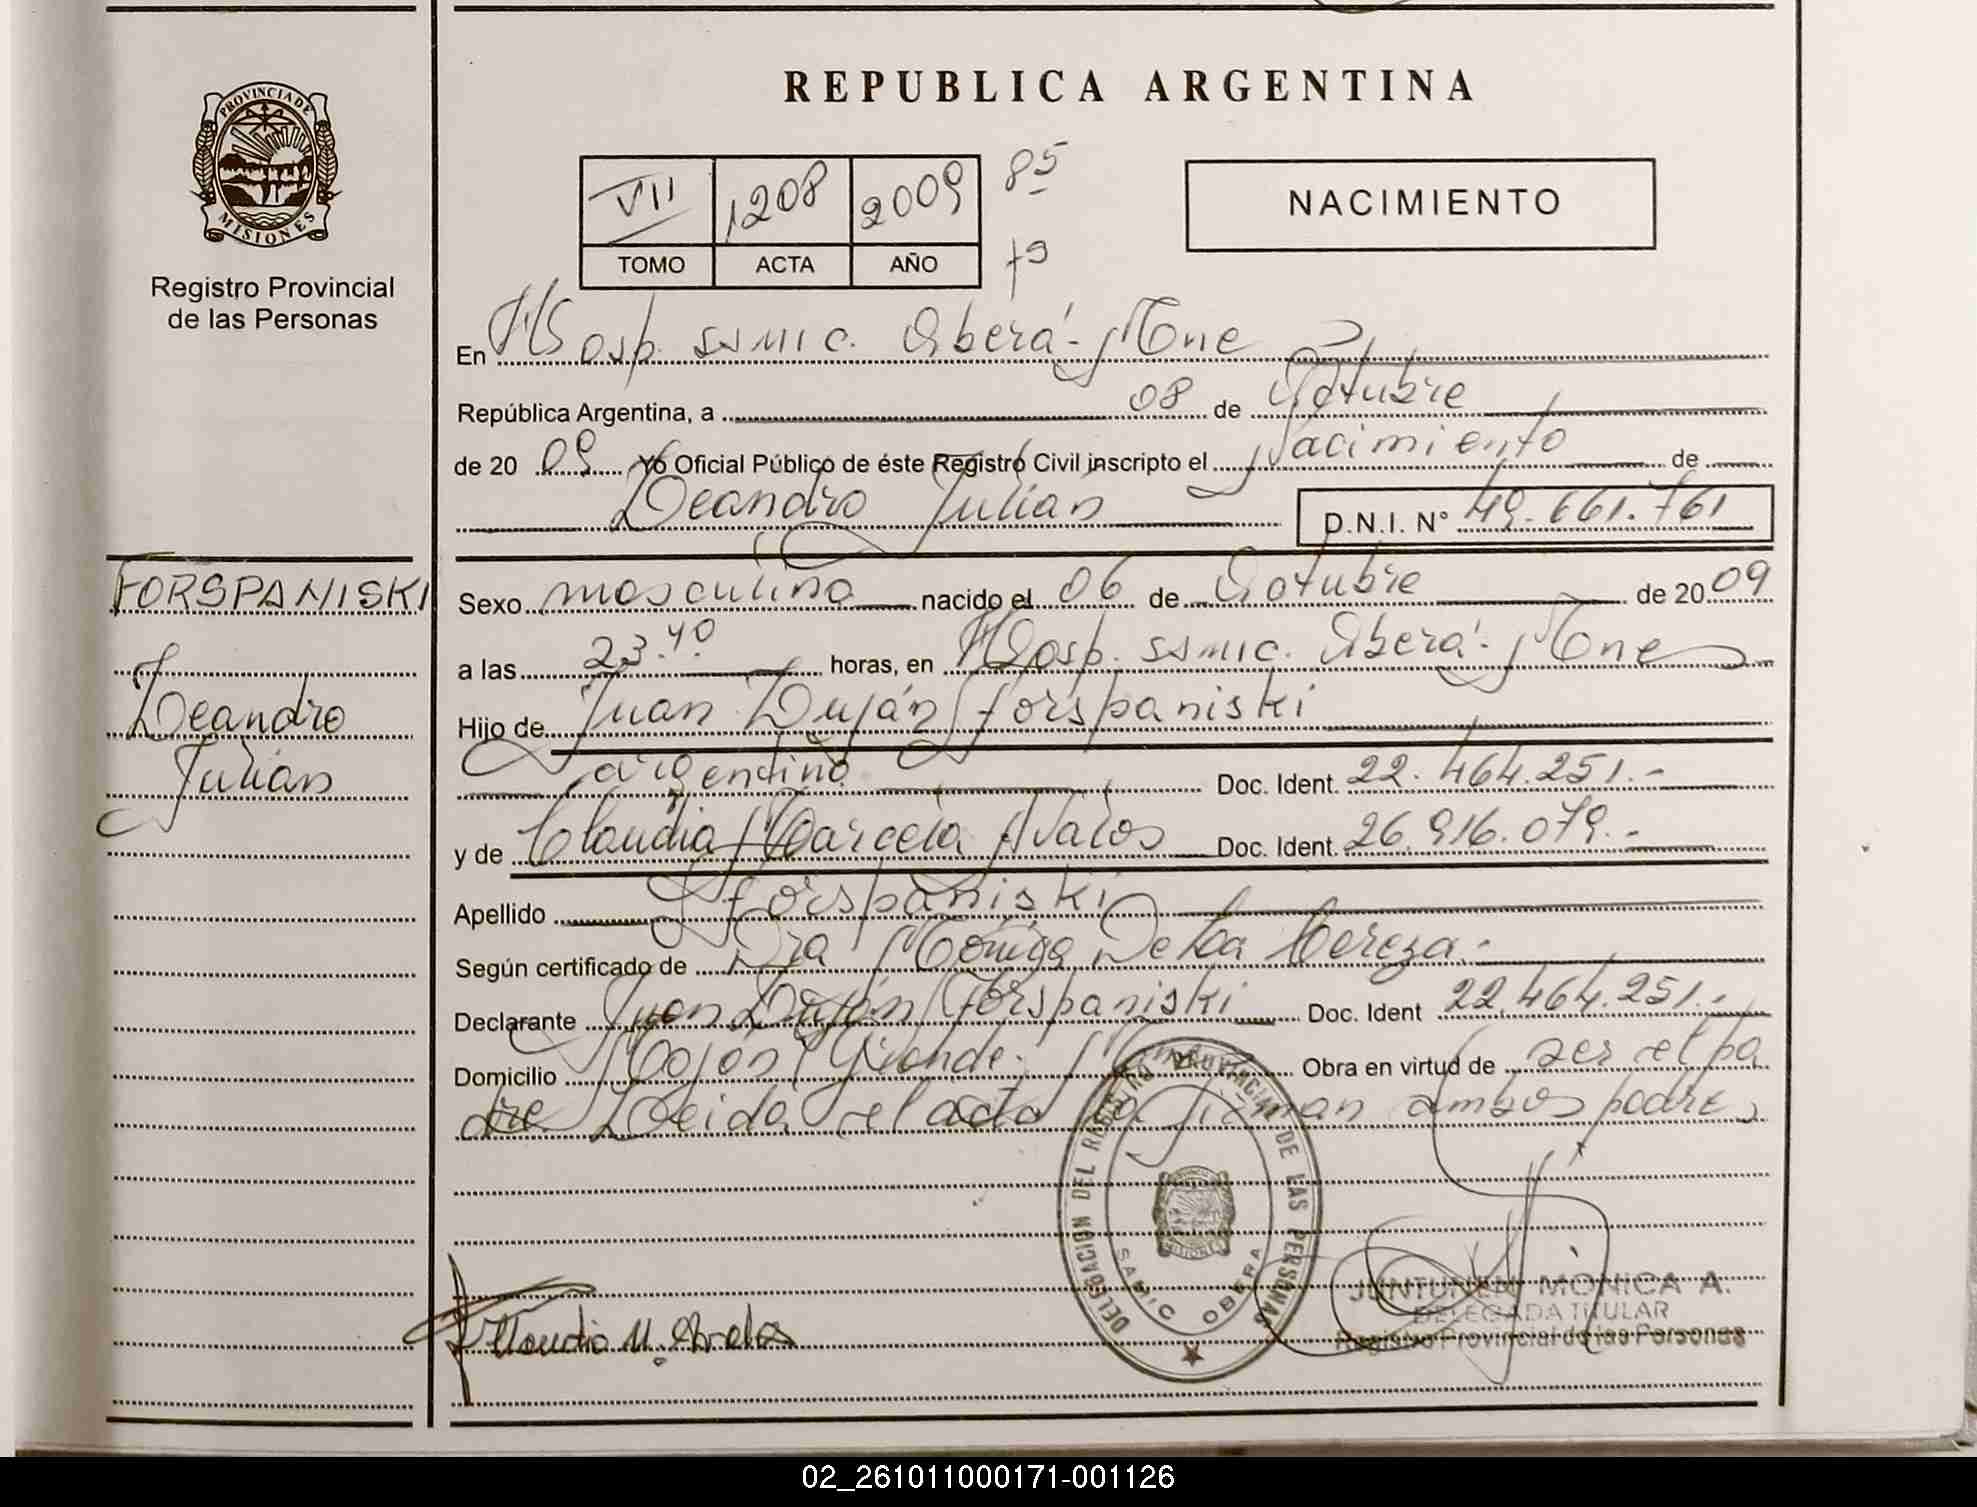 REPUBLICA ARGENTINA
PROVINCIA DE MISIONES
Registro Provincial
de las Personas
VII 1208 2009 85
TOMO ACTA AÑO 79
NACIMIENTO
En Hosp. SSMIC. Oberá - Mnes
República Argentina, a 08 de Octubre
de 20 09 Yo Oficial Público de éste Registro Civil inscripto el Nacimiento de
Leandro Julián D.N.I. N° 49.661.761
FORSPANISKI
Leandro
Julián
Sexo masculino nacido el 06 de Octubre de 20 09
a las 23.40 horas, en Hosp. SSMIC. Oberá - Mnes
Hijo de Juan Luján Forspaniski
argentino Doc. Ident. 22.464.251.-
y de Claudia Marcela Avalos Doc. Ident. 26.916.079.-
Apellido Forspaniski
Según certificado de Dra Mónica De La
Declarante Juan Luján Forspaniski Doc. Ident 22.464.251.-
Domicilio Mojón Grande. Obra en virtud de ser el pa
dre Leída el acta la firman ambos padres
DELEGACION DEL REGISTRO PROVINCIAL DE LAS PERSONAS
SAMIC OBERA
MISIONES
Claudia M. Avalos
JUNTUNEN MONICA A.
DELEGADA TITULAR
Registro Provincial de las Personas
02_261011000171-001126